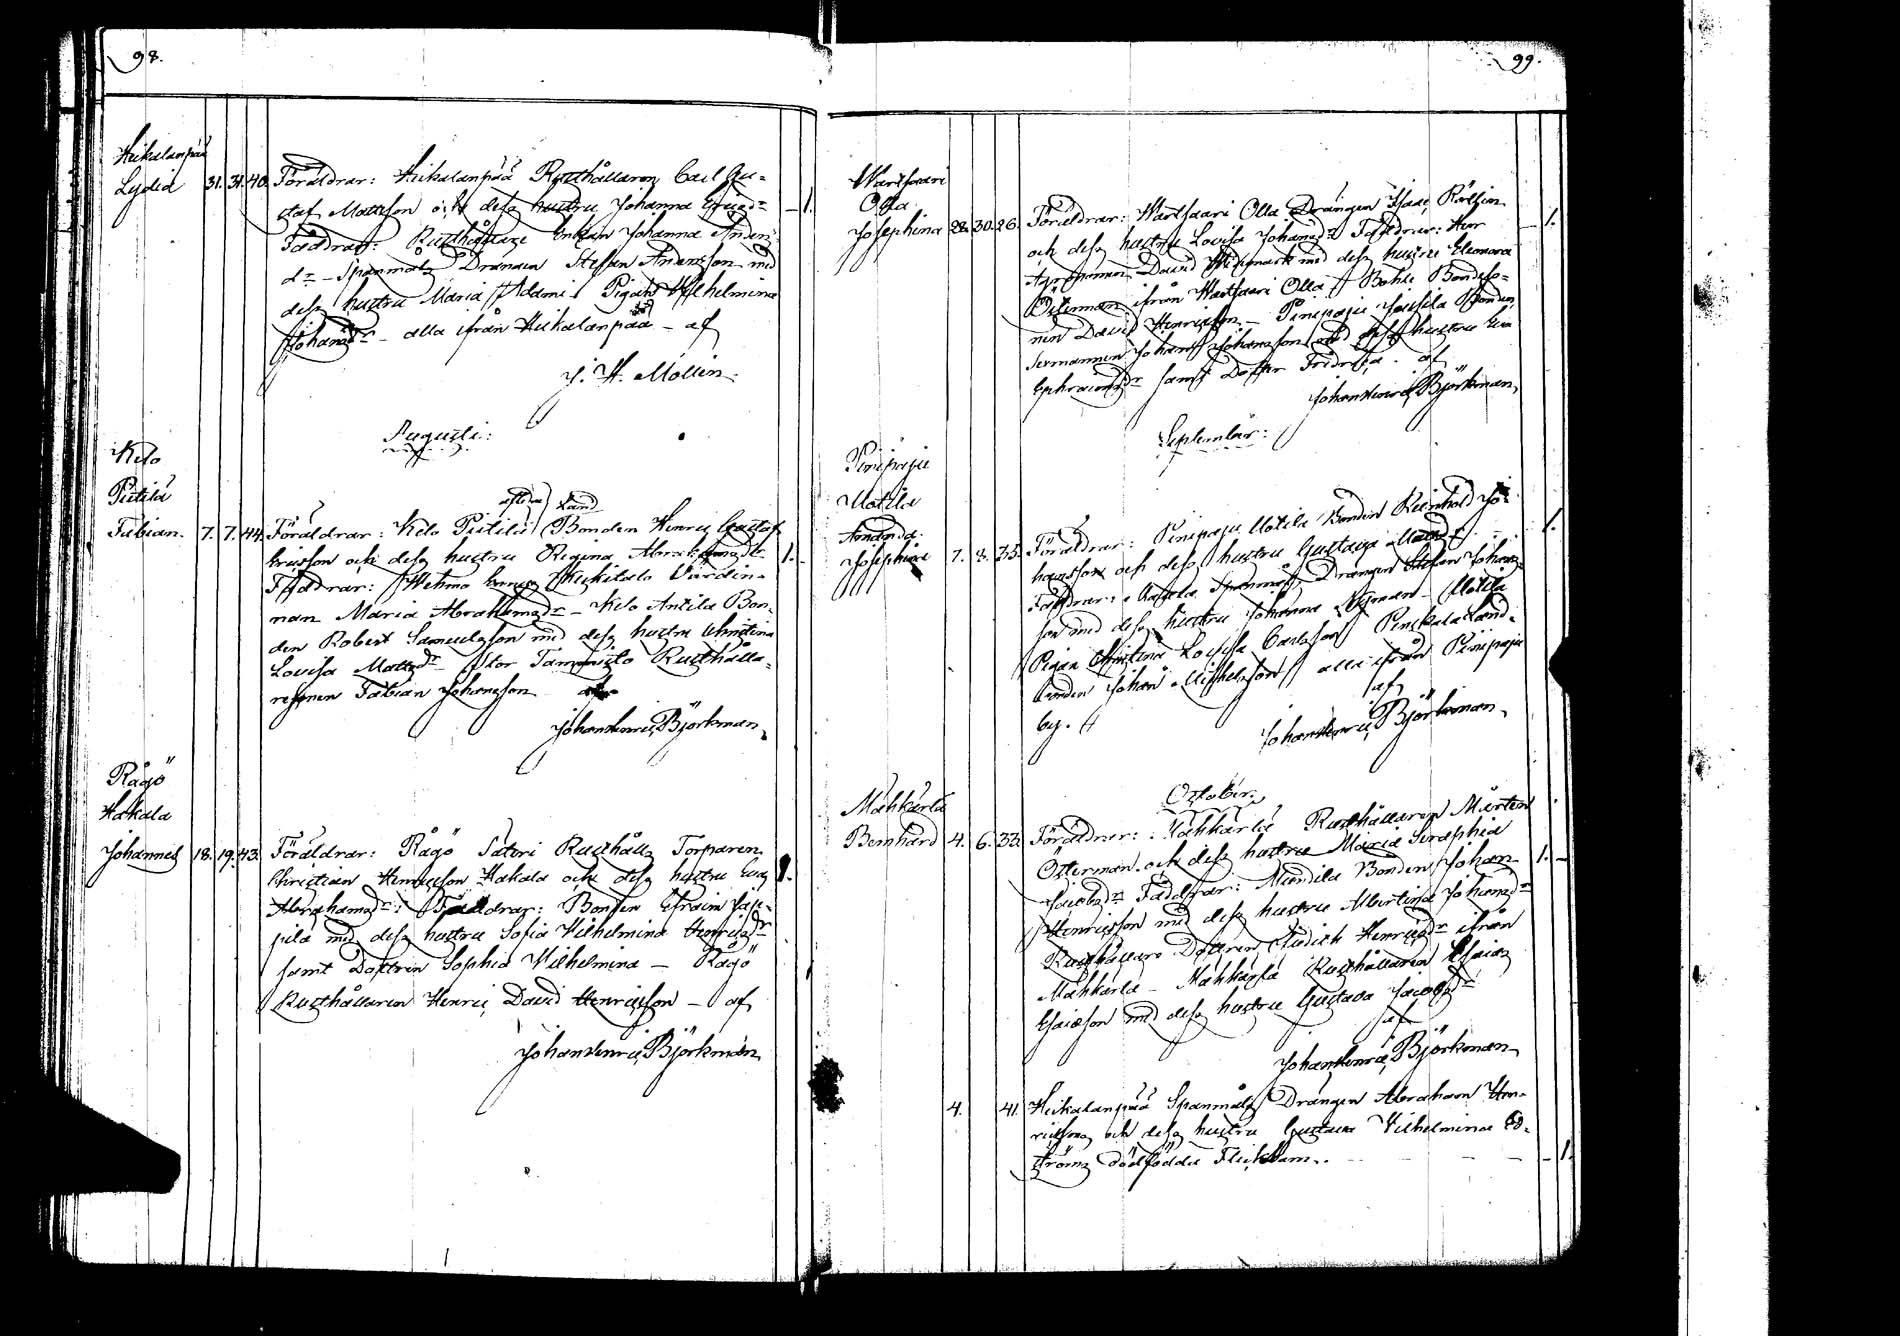 98.
Heikalanpää
Lydia 31. 31. 40. Föräldrar: Heikalanpää Rusthållaren Carl Gu-
staf Mattsson och dess hustru Johanna
Faddrar: Rusthållare Enkan Johanna Anders
dr – Spanmåls Drängen Stefan Andersson med
dess hustru Maria Adami Pigan Wilhelmina
Johansdr – alla ifrån Heikalanpää – af
J. H. Mollin.
Augusti:
Kelo
Pietilä
Fabian. 7. 7. 44. Föräldrar: Kelo Pietilä Bonden Henric Gustaf
Hericsson och dess hustru Regina Abrahamsdr 1.
Faddrar: Wehmo Värdin-
nan Maria Abrahamsdr – Kelo Antila Bon-
den Robert Samuelsson med dess hustru Christina
Lovisa Mattsdr Stor Tammisto Rusthålla-
resonen Fabian Johansson af
Johan Henric Björkman.
Rågö
Hakala
Johannes 18. 19. 43. Föräldrar: Rågö Säteri Rusthålls Torparen
Christian Henricsson Hakala och dess hustru Eva 1.
Abrahamsdr: Faddrar: Bonden Efraim Jap-
pilä med dess hustru Sofia Wilhelmina Henricsdr
samt Dottren Sophia Wilhelmina – Rågö
Rusthållaren Henric David Henricsson – af
Johan Henric Björkman
99.
Wartsaari
Olla
Josephina 28. 30. 26. Föräldrar: Wartsaari Olla Drängen Isaac
och dess hustru Lovisa Johansdr Faddrar: Herr 1.
Agronomen David med dess hustru Eleonora
Österman ifrån Wartsaari Olla Bonde-
nen David Henricsson – Pinipaju Jussila
sexmannen Johan Johansson med dess hustru Eva
Ephraimsdr samt Dotter Fridrika. af
Johan Henric Björkman
September:
Pinipaju
Uotila
Amanda
Josephina 7. 8. 35. Föräldrar: Pinipaju Uotila Bonden Reinhold Jo- 1.
hansson och dess hustru Gustava
Faddrar: Spanmåls Drängen Stefan Johans-
son med dess hustru Johanna Nyman – Uotila
Pigan Christina Lovisa Carlsson Land-
bonden Johan Michelsson alla ifrån Pinipaju
by. af
Johan Henric Björkman
October.
Mahkarla
Bernhard 4. 6. 33. Föräldrar: Mahkarla Rusthållaren Mårten
Österman och dess hustru Maria Seraphia 1.
Jacobsdr Faddrar: Mundila Bonden Johan
Henricsson med dess hustru Albertina Johansdr
Rusthållare Dottren Judith Henricsdr ifrån
Mahkarla – Mahkarla Rusthållaren Esaias
Esaiasson med dess hustru Gustava Jacobsdr
af
Johan Henric Björkman
4. 41. Heikalanpää Spanmåls Drängen Abraham Hen-
ricssons och dess hustru Gustava Wilhelmina
ströms dödfödda Flickbarn. 1.